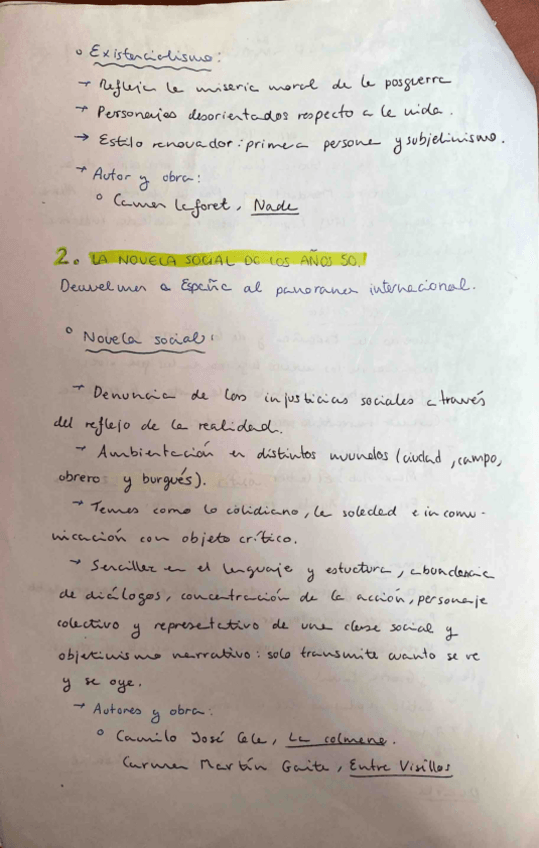 ° Existencialismo:
→ Refleja la miseria moral de la posguerra
→ Personajes desorientados respecto a la vida.
→ Estilo renovador: primera persona y subjetivismo.
→ Autor y obra:
° Carmen Laforet, Nada
2. LA NOVELA SOCIAL DE LOS AÑOS 50.
Devuelven a España al panorama internacional.
° Novela social:
→ Denuncia de las injusticias sociales a través
del reflejo de la realidad.
→ Ambientación en distintos mundos (ciudad, campo,
obrero y burgués).
→ Temas como lo cotidiano, la soledad e incomu-
nicación con objeto crítico.
→ Sencillez en el lenguaje y estuctura, abundancia
de diálogos, concentración de la acción, personaje
colectivo y representativo de una clase social y
objetivismo narrativo: solo transmite cuanto se ve
y se oye.
→ Autores y obra:
° Camilo José Cela, La colmena.
Carmen Martín Gaite, Entre Visillos